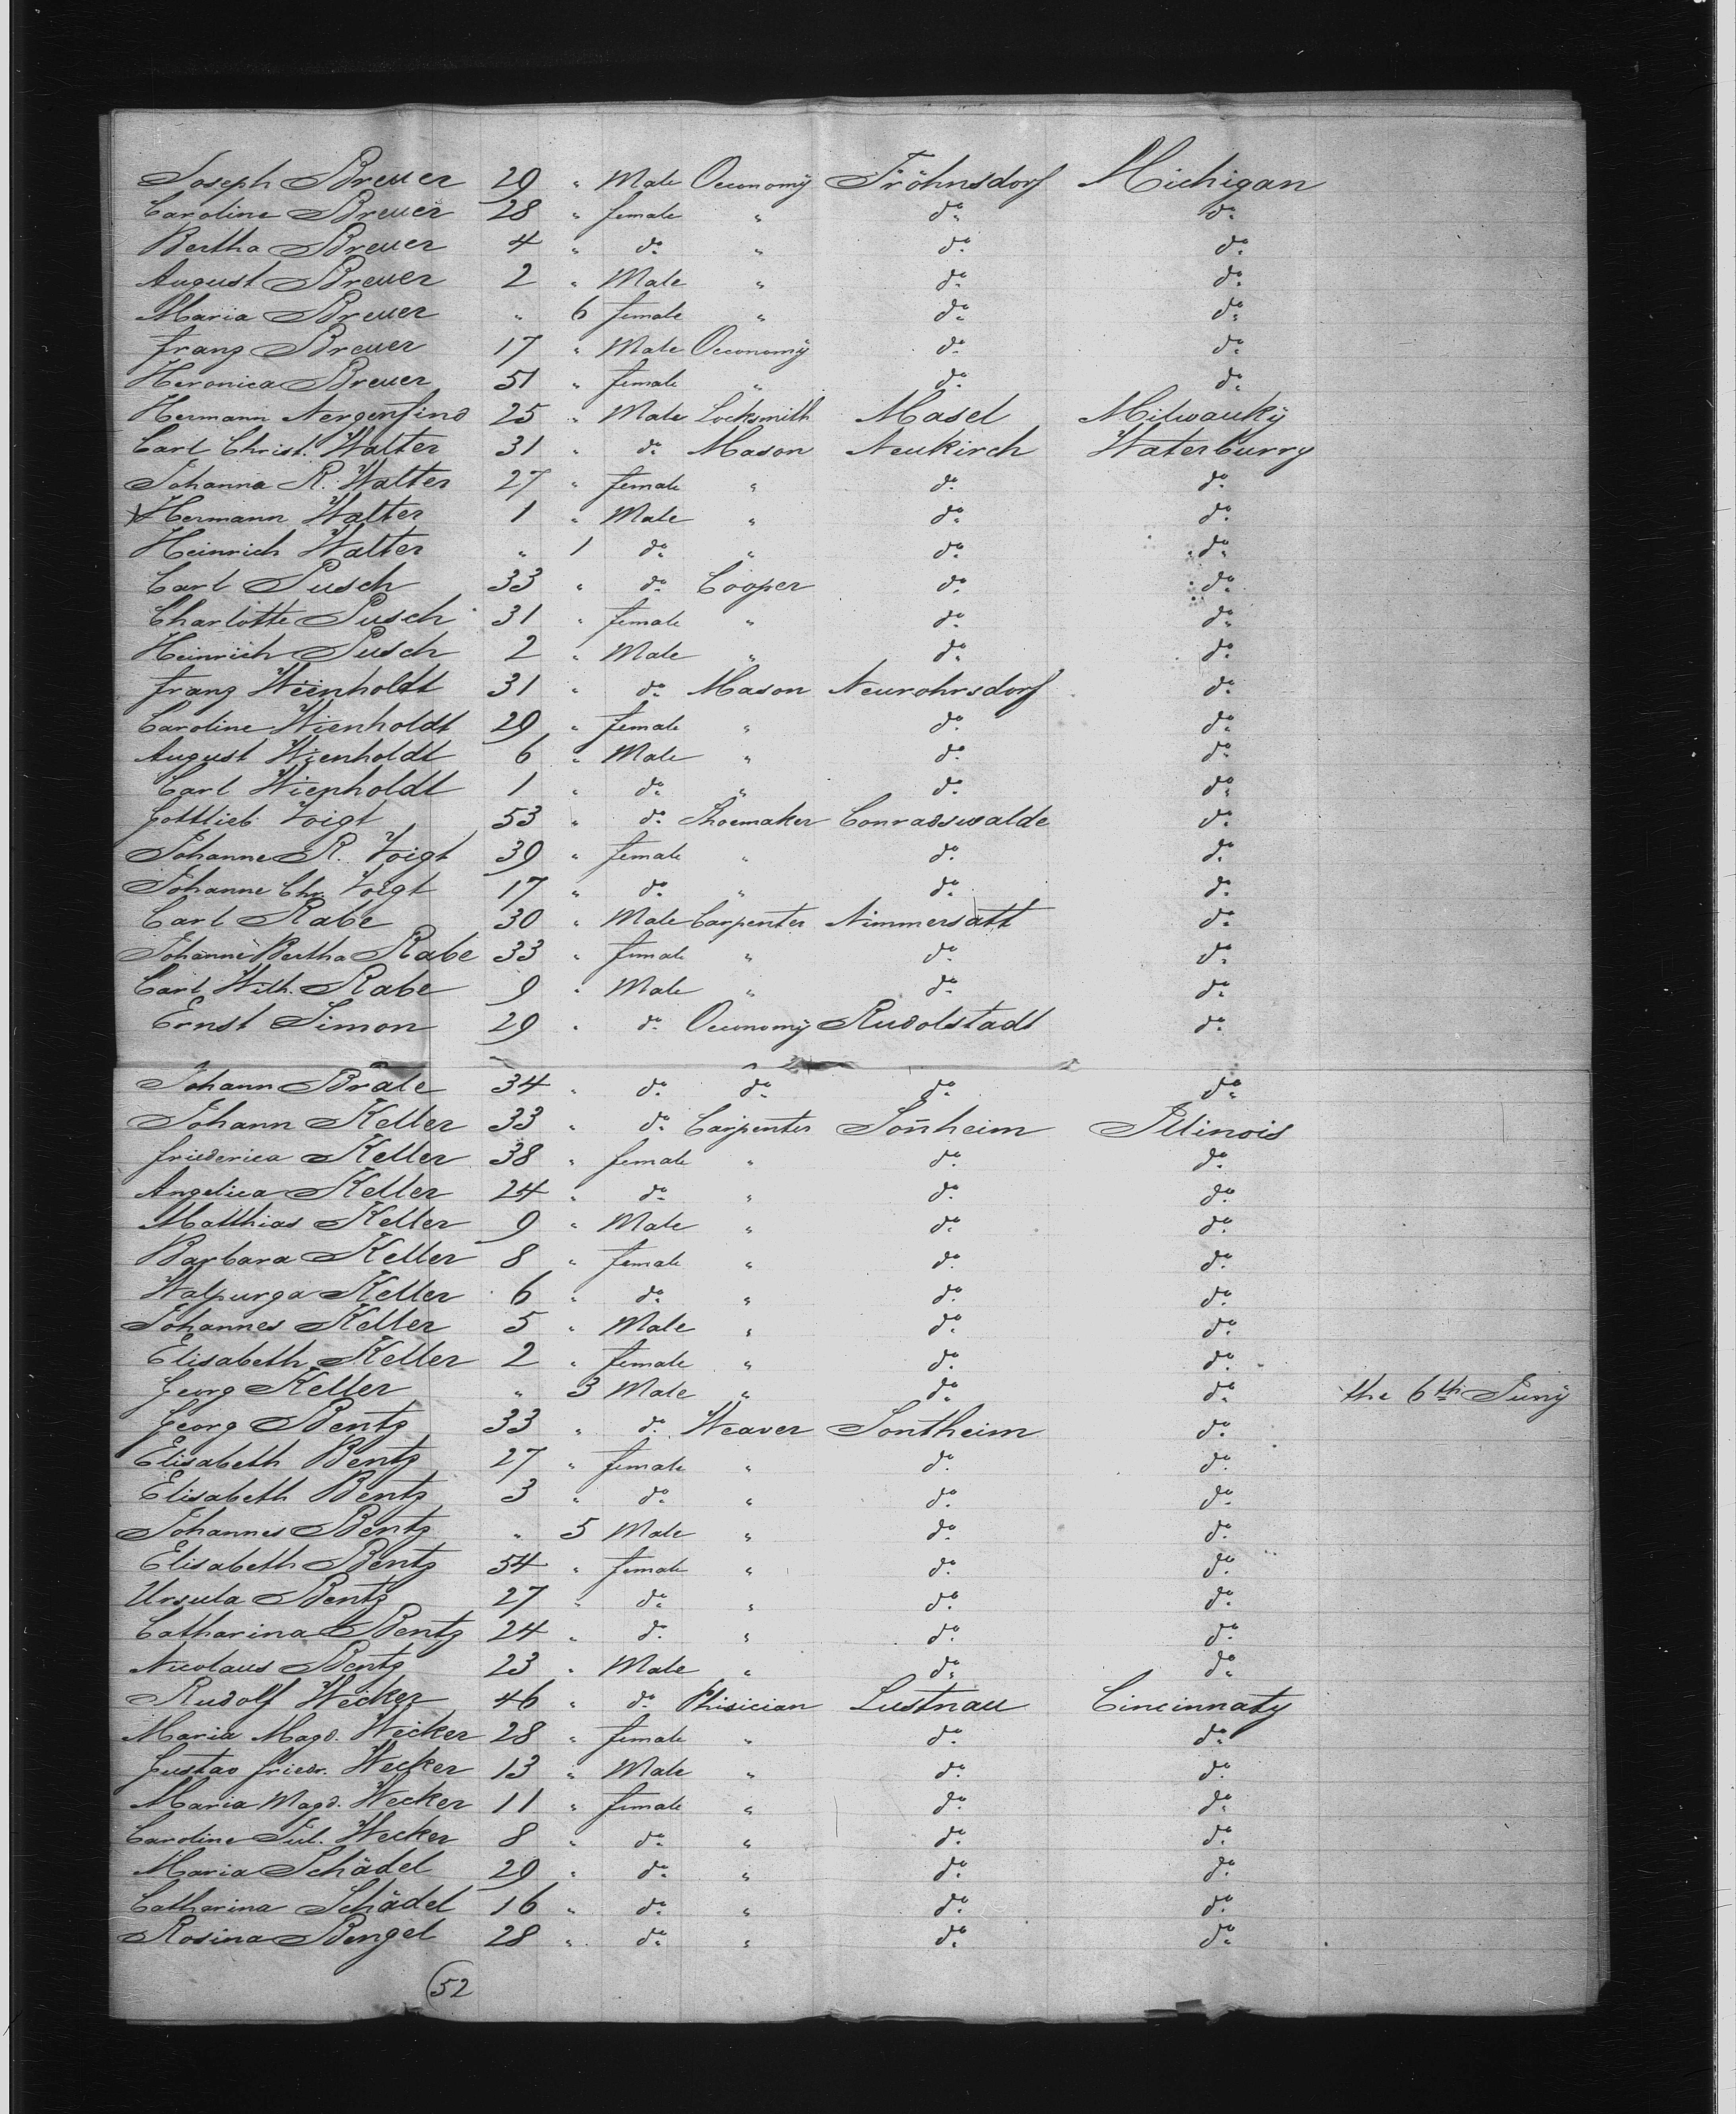 Joseph Breuer 29 " Male Oeconomÿ Fröhnsdorf Michigan
Caroline Breuer 28 " female " do do
Bertha Breuer 4 " do " do do
August Breuer 2 " Male " do do
Maria Breuer " 6 female " do do
Franz Breuer 17 " Male Oeconomÿ do do
Heronica Breuer 51 " female " do do
Hermann Nergenfind 25 " Male Locksmith Masel Milwaukÿ
Carl Christ. Walter 31 " do Mason Neukirch Waterburry
Johanna R. Walter 27 " female " do do
Hermann Walter 1 " Male " do do
Heinrich Walter " 1 do " do do
Carl Pusch 33 " do Cooper do do
Charlotte Pusch 31 " female " do do
Heinrich Pusch 2 " Male " do do
Franz Wienholdt 31 " do Mason Neurohrsdorf do
Caroline Wienholdt 29 " female " do do
August Wienholdt 6 " Male " do do
Carl Wienholdt 1 " do " do do
Gottlieb Voigt 53 " do Shoemaker Conradswalde do
Johanne R. Voigt 39 " female " do do
Johanne Chr. Voigt 17 " do " do do
Carl Rabe 30 " Male Carpenter Nimmersatt do
Johanne Bertha Rabe 33 " female " do do
Carl Wilh. Rabe 9 " Male " do do
Ernst Simon 29 " do Oeconomÿ Rudolstadt do
Johann Brate 34 " do do do do
Johann Keller 33 " do Carpenter Soñheim Illinois
Friederica Keller 38 " female " do do
Angelica Keller 24 " do " do do
Matthias Keller 9 " Male " do do
Barbara Keller 8 " female " do do
Walpurga Keller 6 " do " do do
Johannes Keller 5 " Male " do do
Elisabeth Keller 2 " female " do do
Georg Keller " 3 Male " do do the 6th Junÿ
Georg Bentz 33 " do Weaver Sontheim do
Elisabeth Bentz 27 " female " do do
Elisabeth Bentz 3 " do " do do
Johannes Bentz " 5 Male " do do
Elisabeth Bentz 54 " female " do do
Ursula Bentz 27 " do " do do
Catharina Bentz 24 " do " do do
Nicolaus Bentz 23 " Male " do do
Rudolf Wecker 46 " do Phisician Lustnau Cincinnaty
Maria Magd. Wecker 28 " female " do do
Gustav Friedr. Wecker 13 " Male " do do
Maria Magd. Wecker 11 " female " do do
Caroline Jul. Wecker 8 " do " do do
Maria Schädel 29 " do " do do
Catharina Schädel 16 " do " do do
Rosina Bengel 28 " do " do do
52